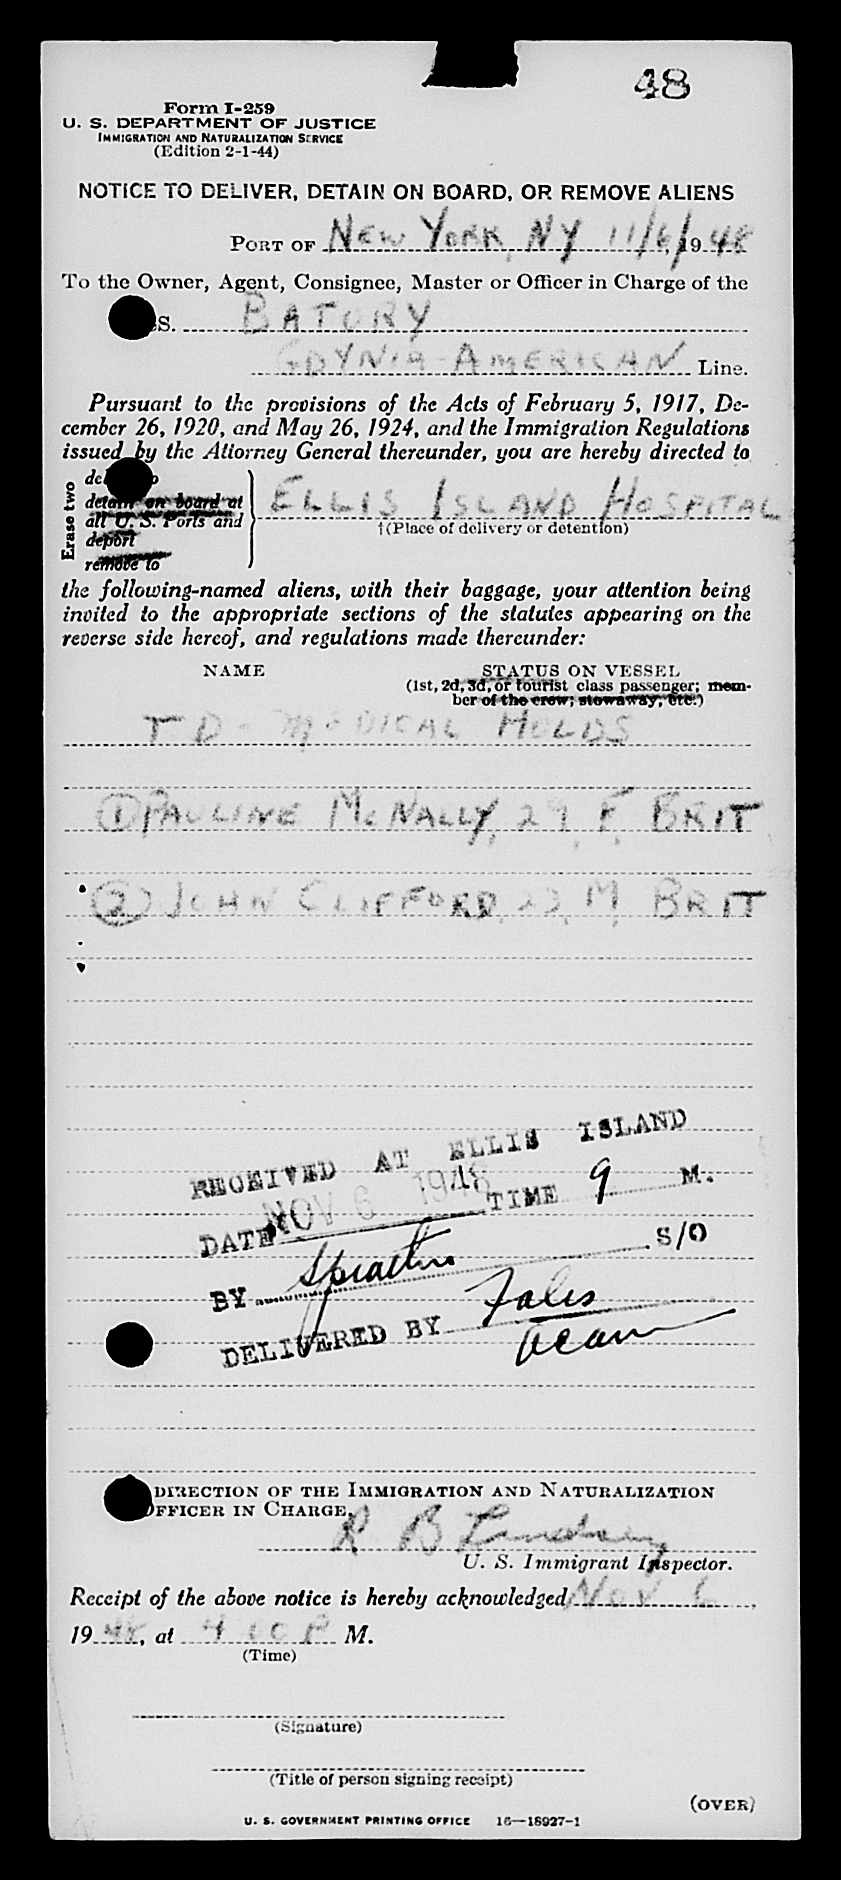 48
Form I-259
U. S. DEPARTMENT OF JUSTICE
IMMIGRATION AND NATURALIZATION SERVICE
(Edition 2-1-44)
NOTICE TO DELIVER, DETAIN ON BOARD, OR REMOVE ALIENS
PORT OF NEW YORK, NY 11/6/, 1948
To the Owner, Agent, Consignee, Master or Officer in Charge of the
S. BATORY
GDYNIA-AMERICAN Line.
Pursuant to the provisions of the Acts of February 5, 1917, De-
cember 26, 1920, and May 26, 1924, and the Immigration Regulations
issued by the Attorney General thereunder, you are hereby directed to
Erase two
detain on board at
all U. S. Ports and
deport
remove to
ELLIS ISLAND HOSPITAL
†(Place of delivery or detention)
the following-named aliens, with their baggage, your attention being
invited to the appropriate sections of the statutes appearing on the
reverse side hereof, and regulations made thereunder:
NAME STATUS ON VESSEL
(1st, 2d, 3d, or tourist class passenger; mem-
ber of the crew; stowaway, etc.)
TD - MEDICAL HOLDS
① PAULINE McNALLY, 29, F, BRIT
② JOHN CLIFFORD, M, BRIT
RECEIVED AT ELLIS ISLAND
DATE NOV 6 1948 TIME 9 M.
BY S/O
DELIVERED BY
DIRECTION OF THE IMMIGRATION AND NATURALIZATION
OFFICER IN CHARGE.
R B Lindsey
U. S. Immigrant Inspector.
Receipt of the above notice is hereby acknowledged Nov 6,
1948, at 4 00 P M.
(Time)
(Signature)
(Title of person signing receipt)
(OVER)
U. S. GOVERNMENT PRINTING OFFICE 16—18927-1